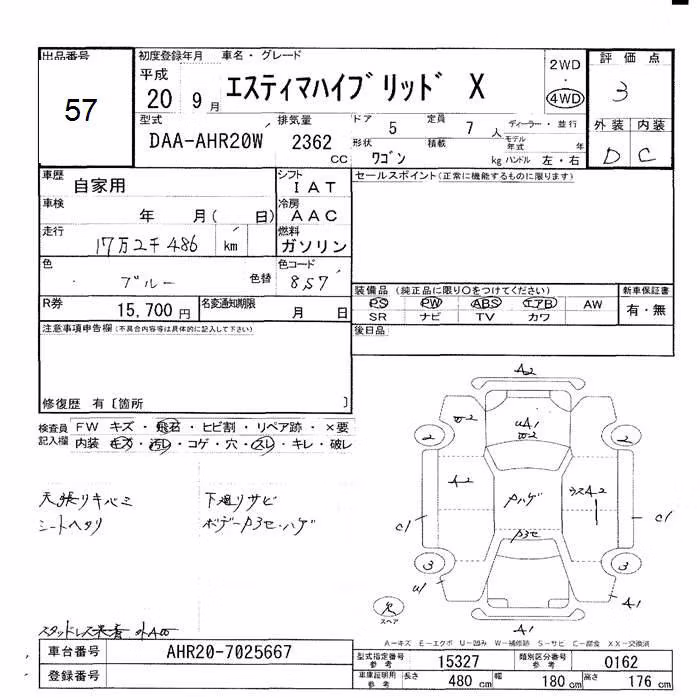 出品番号
57
初度登録年月 車名・グレード
平成
20 9月 エスティマハイブリッド X
2WD
・
4WD
評価点
3
外装 内装
D C
型式 排気量 ドア 5 定員 7 人 ディーラー・並行
DAA-AHR20W 2362 cc 形状 ワゴン 積載 kg モデル年式 年 ハンドル 左・右
車歴 自家用
シフト IAT
車検 年 月( 日)
冷房 AAC
走行 17万2千486 km
燃料 ガソリン
色 ブルー 色替
色コード 8S7
R券 15,700 円 名変通知期限 月 日
セールスポイント(正常に機能するものに限ります)
装備品 (純正品に限り○をつけてください) 新車保証書
PS PW ABS エアB AW 有・無
SR ナビ TV カワ
後日品
注意事項申告欄(不具合内容等は具体的に記入して下さい)
修復歴 有〔箇所 〕
検査員記入欄 FW キズ・飛石・ヒビ割・リペア跡・×要
内装 キズ・汚レ・コゲ・穴・スレ・キレ・破レ
天張リキバミ 下廻リサビ
シートヘタリ
A2
UA1
2 2
A2 Pハゲ ウスA2
C1 C1
3 3
U1 A1
スペア
A1
A-キズ E-エクボ U-凹み W-補修跡 S-サビ C-腐食 XX-交換済
車台番号 AHR20-7025667
型式指定番号 参考 15327 類別区分番号 参考 0162
登録番号
車庫証明用 参考 長さ 480 cm 幅 180 cm 高さ 176 cm